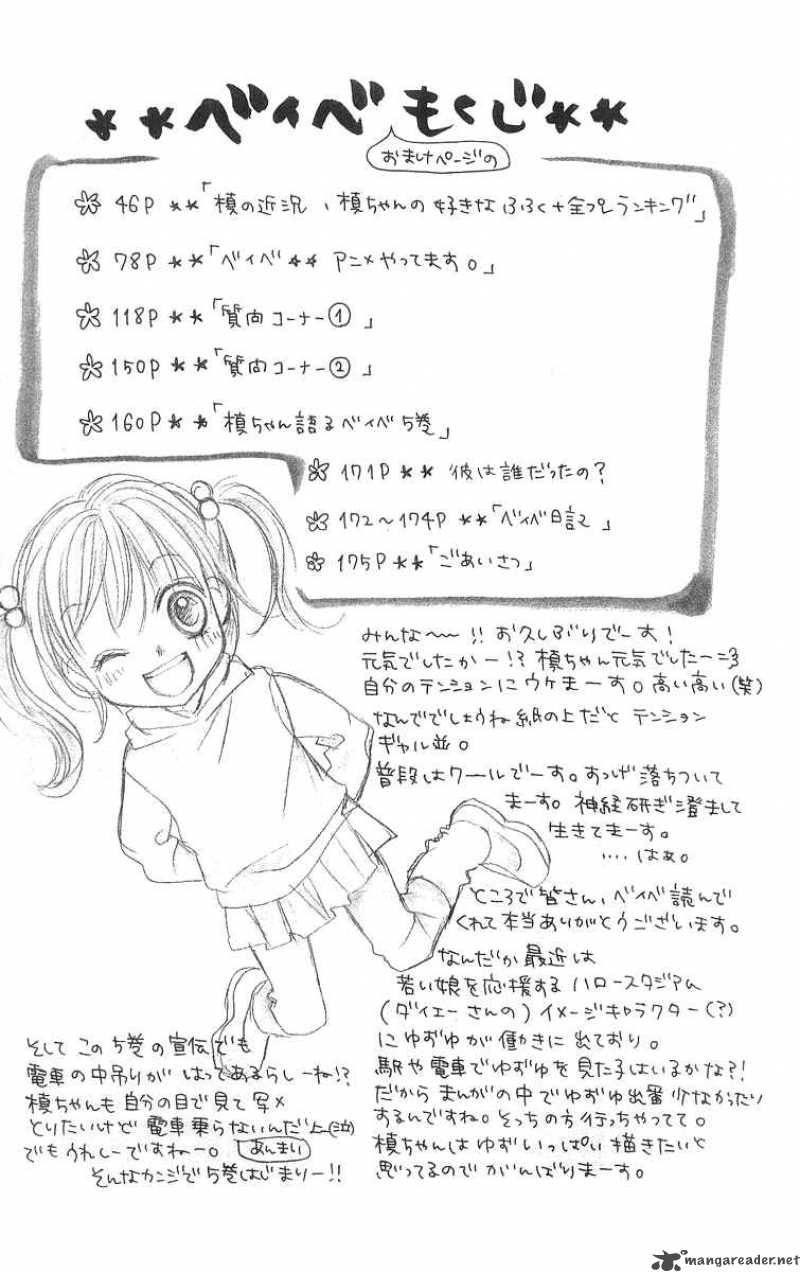 **ベイベもくじ**
おまけページの
46P **「槙の近況、槙ちゃんの好きなふろく+全プレランキング」
78P **「ベイベ** アニメやってます。」
118P **「質問コーナー①」
150P **「質問コーナー②」
160P **「槙ちゃん語るベイベ5巻」
171P ** 彼は誰だったの?
172~174P **「ベイベ日記」
175P **「ごあいさつ」
みんな~~!!お久しぶりでーす!
元気でしたかー!?槙ちゃん元気でしたー
自分のテンションにウケまーす。高い高い(笑)
なんででしょうね紙の上だと テンション
ギャル並。
普段はクールでーす。すっげ落ちついて
まーす。神経研ぎ澄まして
生きてまーす。
....はぁ。
ところで皆さん、ベイベ読んで
くれて本当ありがとうございます。
なんだか最近は
若い娘を応援する ハロースタジアム
(ダイエーさんの)イメージキャラクター(?)
にゆずゆが働きに出ており。
駅や電車でゆずゆを見た子はいるかな?!
だからまんがの中でゆずゆ出番少なかったり
するんですね。そっちの方行っちゃってて。
槙ちゃんはゆずいっぱい描きたいと
思ってるのでがんばりまーす。
そして この5巻の宣伝でも
電車の中吊りが はってあるらしーね!?
槙ちゃんも自分の目で見て写メ
とりたいけど電車乗らないんだよ(泣)
でもうれしーですねー。
あんまり
そんなカンジで5巻はじまりー!!
mangareader.net